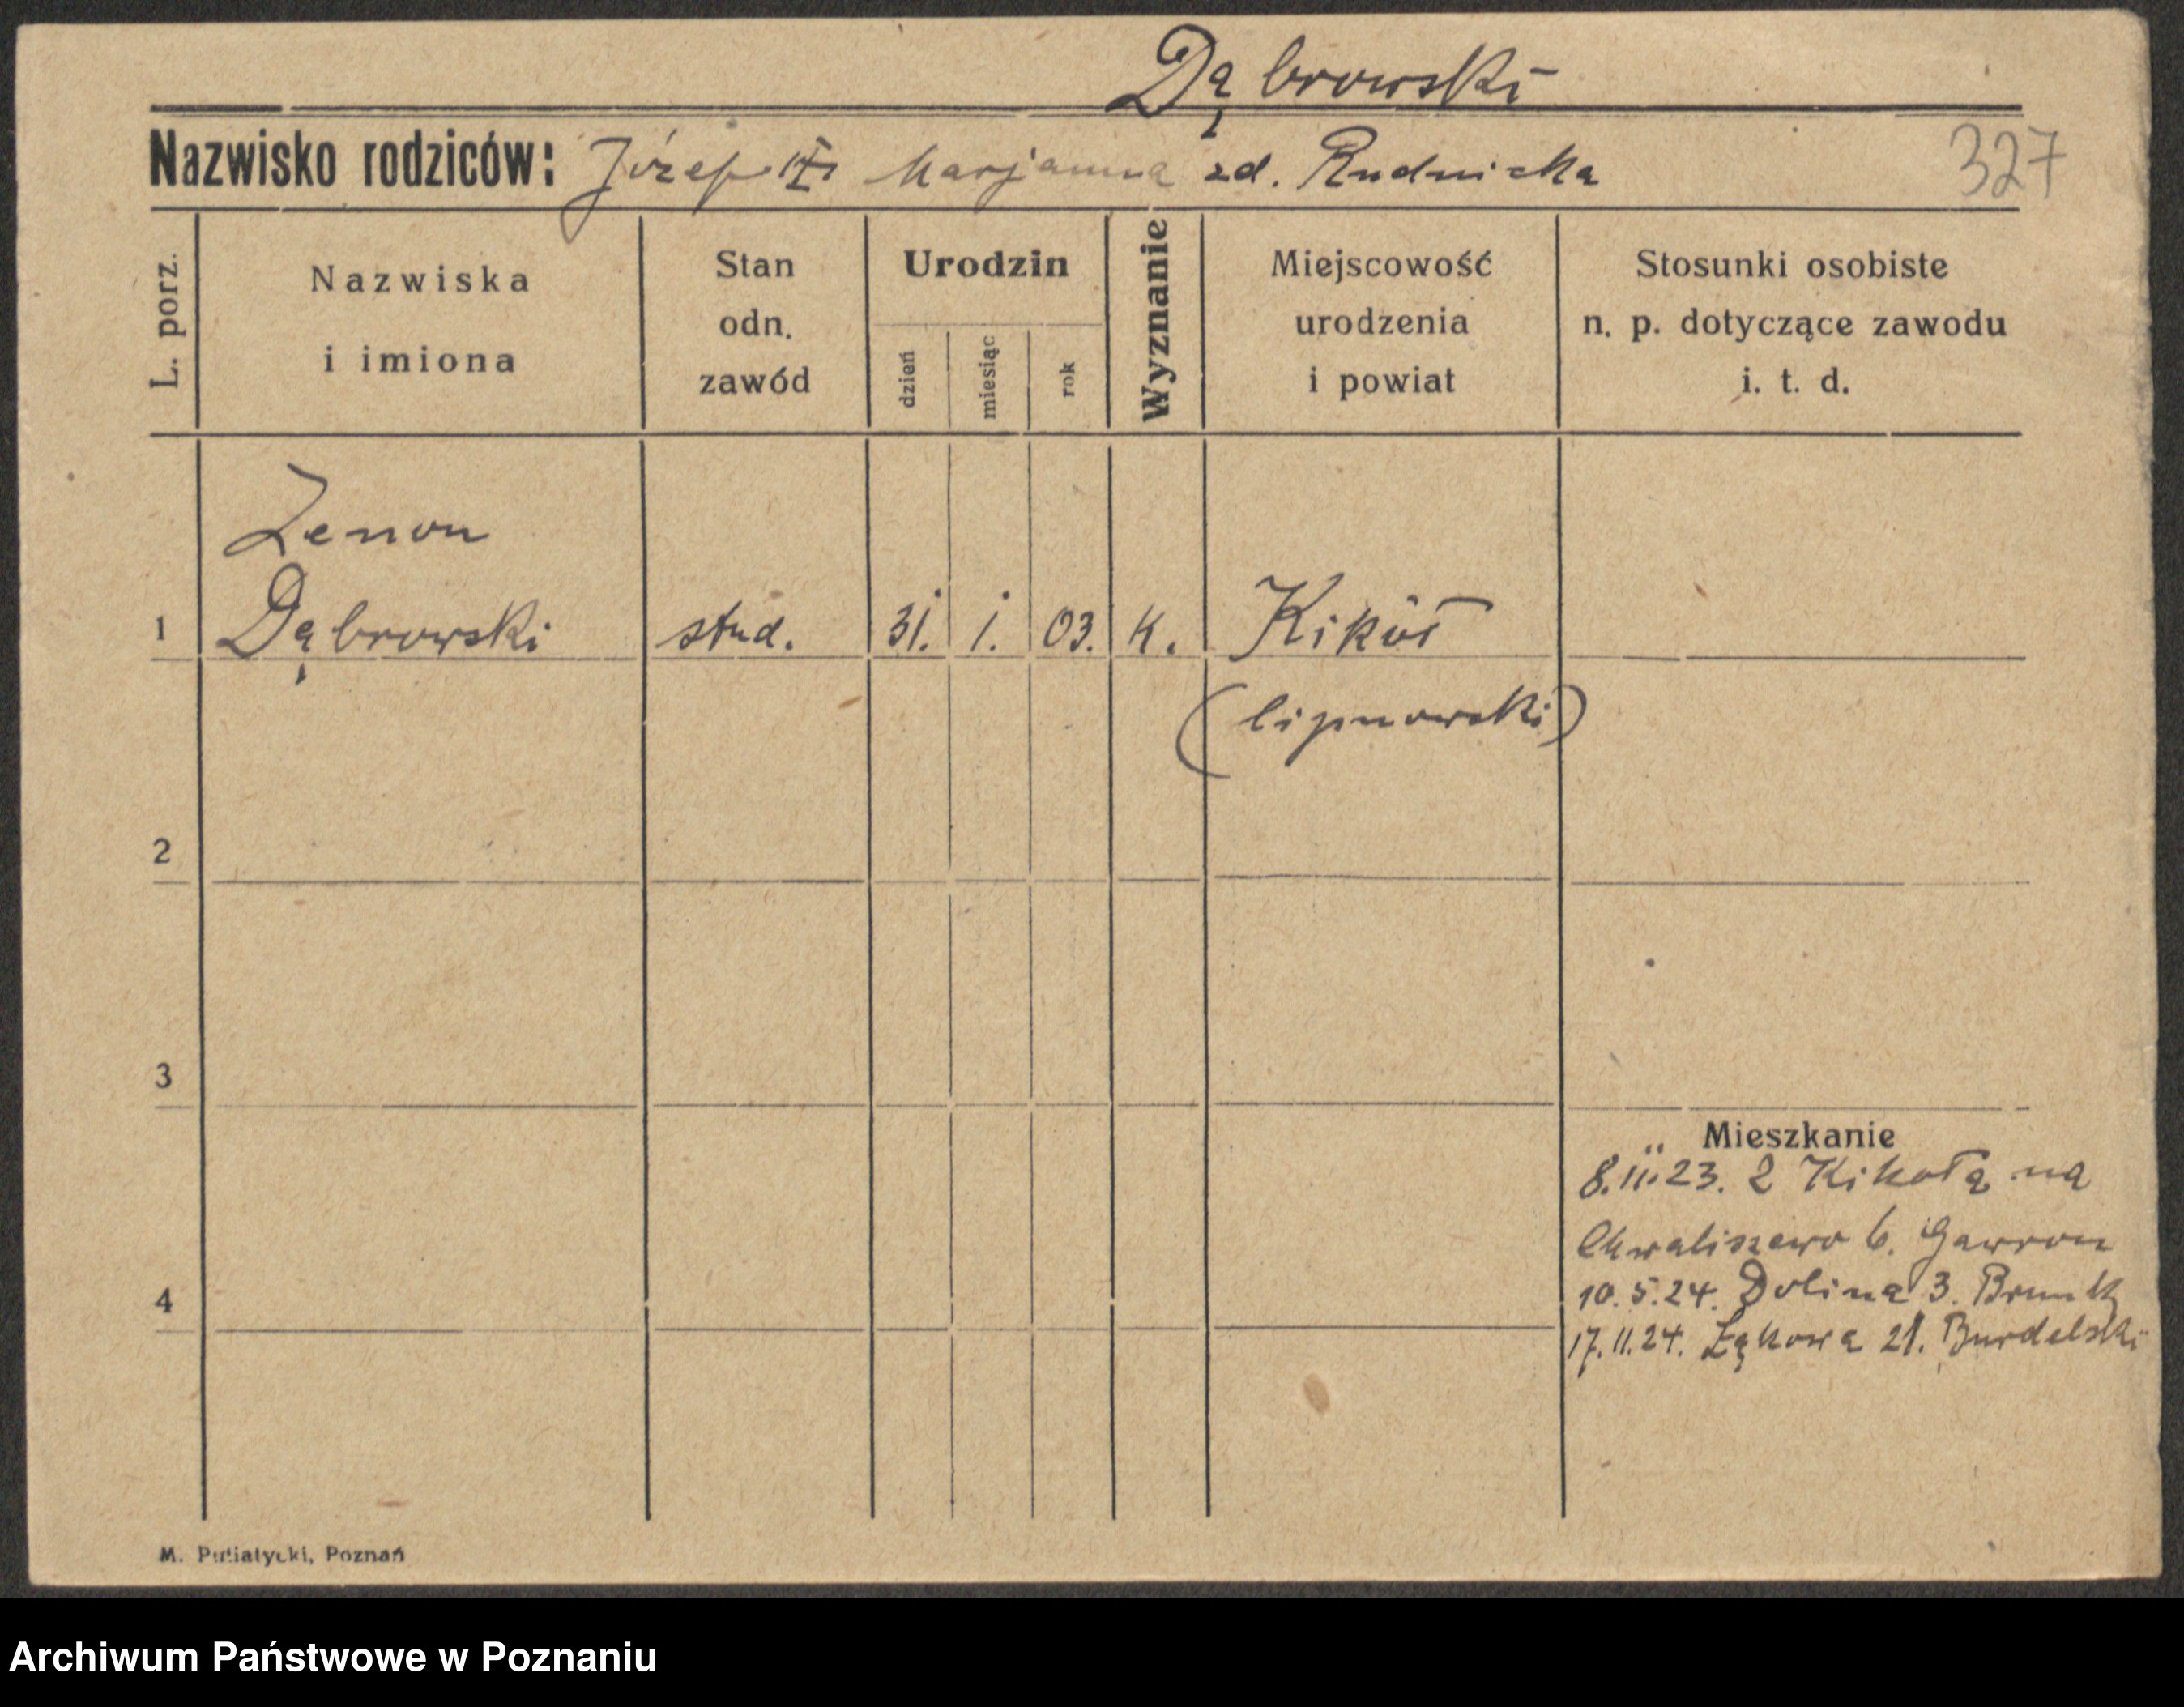 Dąbrowski
Nazwisko rodziców: Józef Marjanna zd. Rudnicka 327
L. porz.
Nazwiska
i imiona
Stan
odn.
zawód
Urodzin
dzień
miesiąc
rok
Wyznanie
Miejscowość
urodzenia
i powiat
Stosunki osobiste
n. p. dotyczące zawodu
i. t. d.
Zenon
1 Dąbrowski stud. 31. 1. 03. k. Kikół
(lipnowski)
2
3
4
Mieszkanie
8.11.23. Z Kikołą na
Chwaliszewo 6. Gawron
10.5.24. Dolina 3.
17.11.24. Łąkowa 21. Burdelski
M. Putiatycki, Poznań
Archiwum Państwowe w Poznaniu